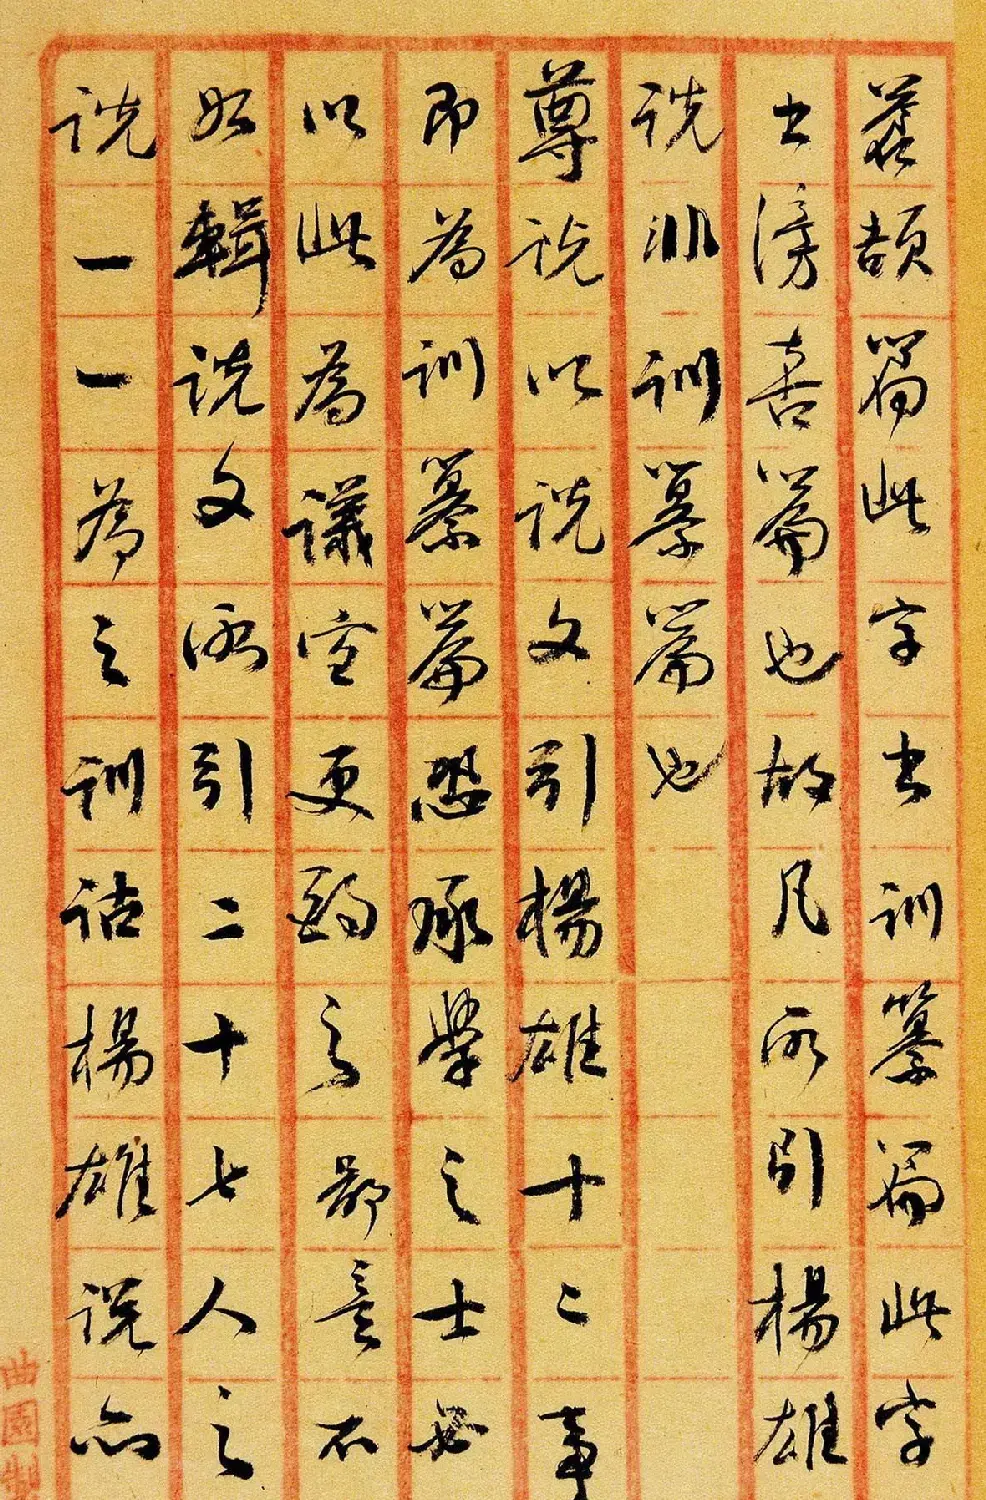 蒼頡篇此字出訓纂篇此字
出滂喜篇也故凡所引楊雄
說非訓纂篇也
尊說以說文引楊雄十二事
即為訓纂篇恐承學之士必
以此為議宜更酌之鄙意不
如輯說文所引二十七人之
說一一為之訓詁楊雄說亦
曲園製